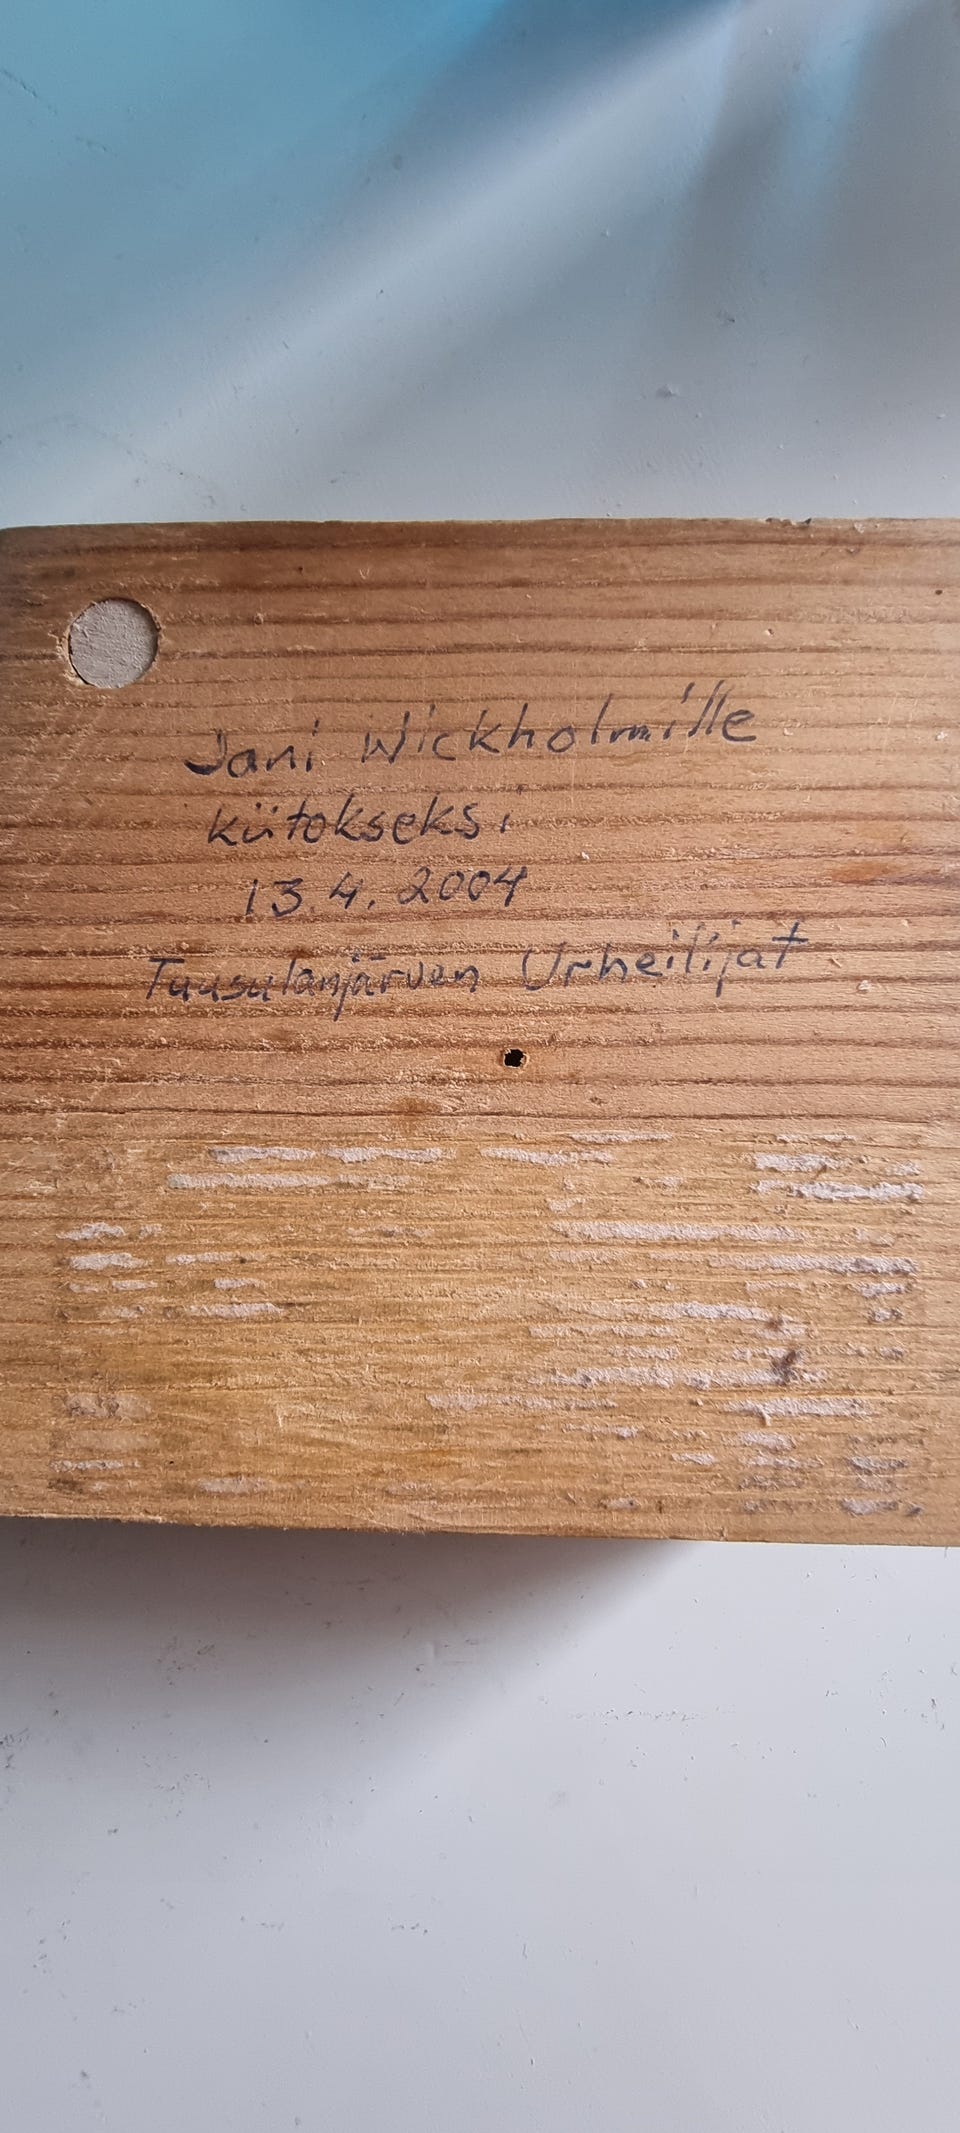 Jani Wickholmille
kiitokseksi
13.4.2004
Tuusulanjärven Urheilijat